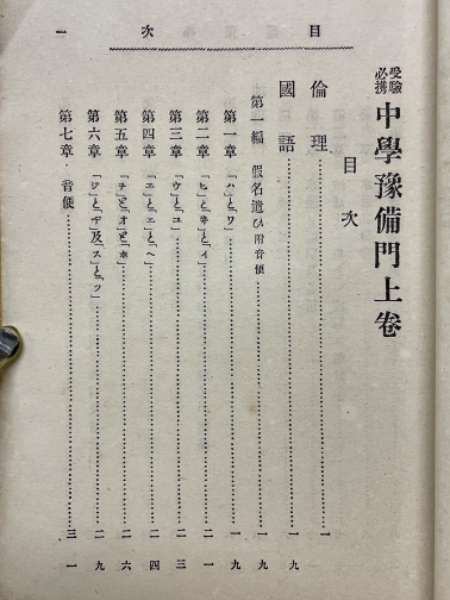 目次 一
受驗必携 中學豫備門上卷
目次
倫理……一
國語……一九
第一編 假名遣ひ附音便……一九
第一章 「ハ」と「ワ」……一九
第二章 「ヒ」と「ヰ」と「イ」……二一
第三章 「ウ」と「ユ」……二三
第四章 「ヱ」と「エ」と「ヘ」……二四
第五章 「ヲ」と「オ」と「ホ」……二六
第六章 「ジ」と「ヂ」及「ズ」と「ヅ」……二九
第七章 音便……三一